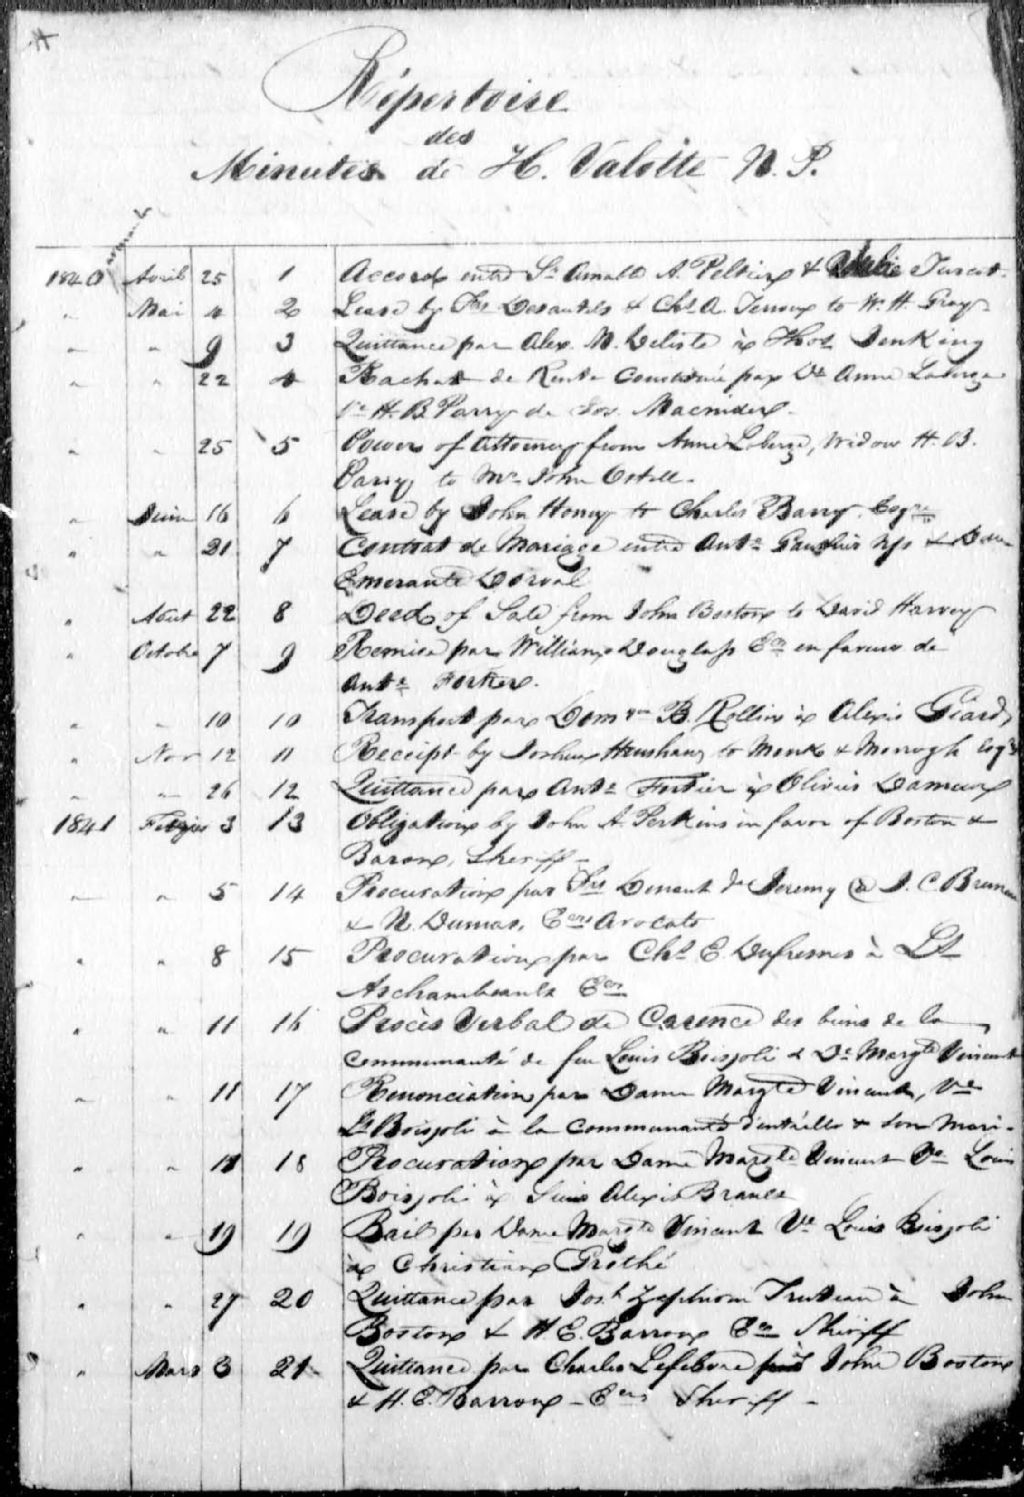 Répertoire
des
Minutes de H. Valotte N. P.
1840 Avril 25 1 Accord entre Sr Amable A. Peltier & Julie Turcot
" Mai 4 2 Lease by Frs Desautels & Chs A. Terroux to W. H. Gray
" " 9 3 Quittance par Alex. M. Delisle à Thos Jenking
" " 22 4 Rachat de Rente Constituée par De Anne Laberge
Ve H. B. Parry de Jos. Macnider
" " 25 5 Power of Attorney from Anne Laberge, Widow H. B.
Parry to Mr John Ostell
" Juin 16 6 Lease by John Honey to Charles Barry Esqre
" " 21 7 Contrat de Mariage entre Ante fils & Dame
Emerante Dorval
" Aout 22 8 Deed of Sale from John Boston to David Harvey
" Octobre 7 9 Remise par William Douglass Ecr en faveur de
Ante Fortier
" " 10 10 Transport par Domque B. Rollin à Alexis Giard
" Nov 12 11 Receipt by Joshua Henshaw to Monk & Morrogh Esqrs
" " 26 12 Quittance par Ante Fortier à Olivier Damour
1841 3 13 Obligation by John A. Perkins in favor of Boston &
Baron, Sheriff
" " 5 14 Procuration par Frs dt Jeremy @ J. C.
& N. Dumas, Ecrs Avocats
" " 8 15 Procuration par Chs E. Dufresne à Lt
Archambeault Ecr
" " 11 16 Procès Verbal de Carence des biens de la
Communauté de feu Louis Boisjoli & De Margte Vincent
" " 11 17 Renonciation par Dame Margte Vincent, Ve
Ls Boisjoli à la Communauté d'entr'elle & son Mari
" " 11 18 Procuration par Dame Margte Vincent Ve Louis
Boisjoli à Sieur Alexis Brault
" " 19 19 Bail par Dame Margte Vincent Ve Louis Boisjoli
à Christian Grothé
" " 27 20 Quittance par Josh Zephirin Trudeau à John
Boston & H E. Barron Ecr Sheriff
" Mars 3 21 Quittance par Charles Lefebvre à John Boston
& H. E. Barron Ecrs Sheriff